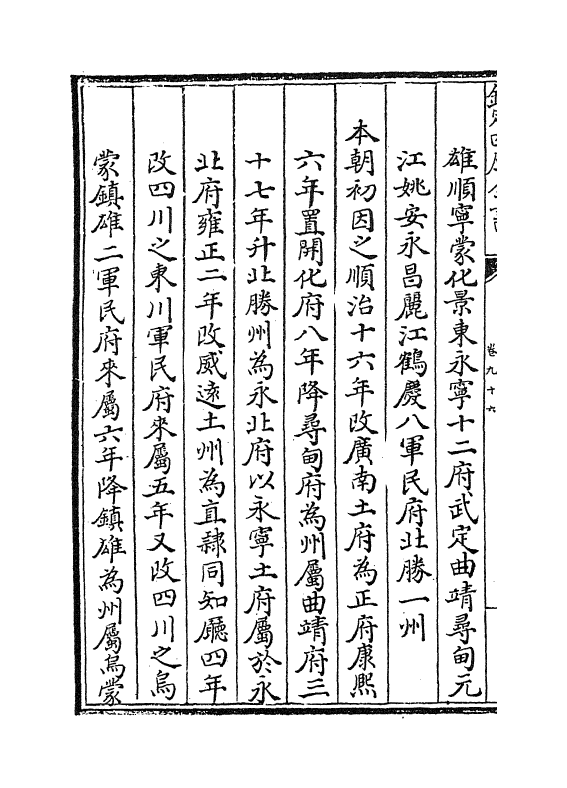 欽定四庫全書
卷九十六
雄順寧蒙化景東永寧十二府武定曲靖尋甸元
江姚安永昌麗江鶴慶八軍民府北勝一州
本朝初因之順治十六年改廣南土府為正府康熙
六年置開化府八年降尋甸府為州屬曲靖府三
十七年升北勝州為永北府以永寧土府屬於永
北府雍正二年改威遠土州為直隸同知廳四年
改四川之東川軍民府來屬五年又改四川之烏
蒙鎮雄二軍民府來屬六年降鎮雄為州屬烏蒙